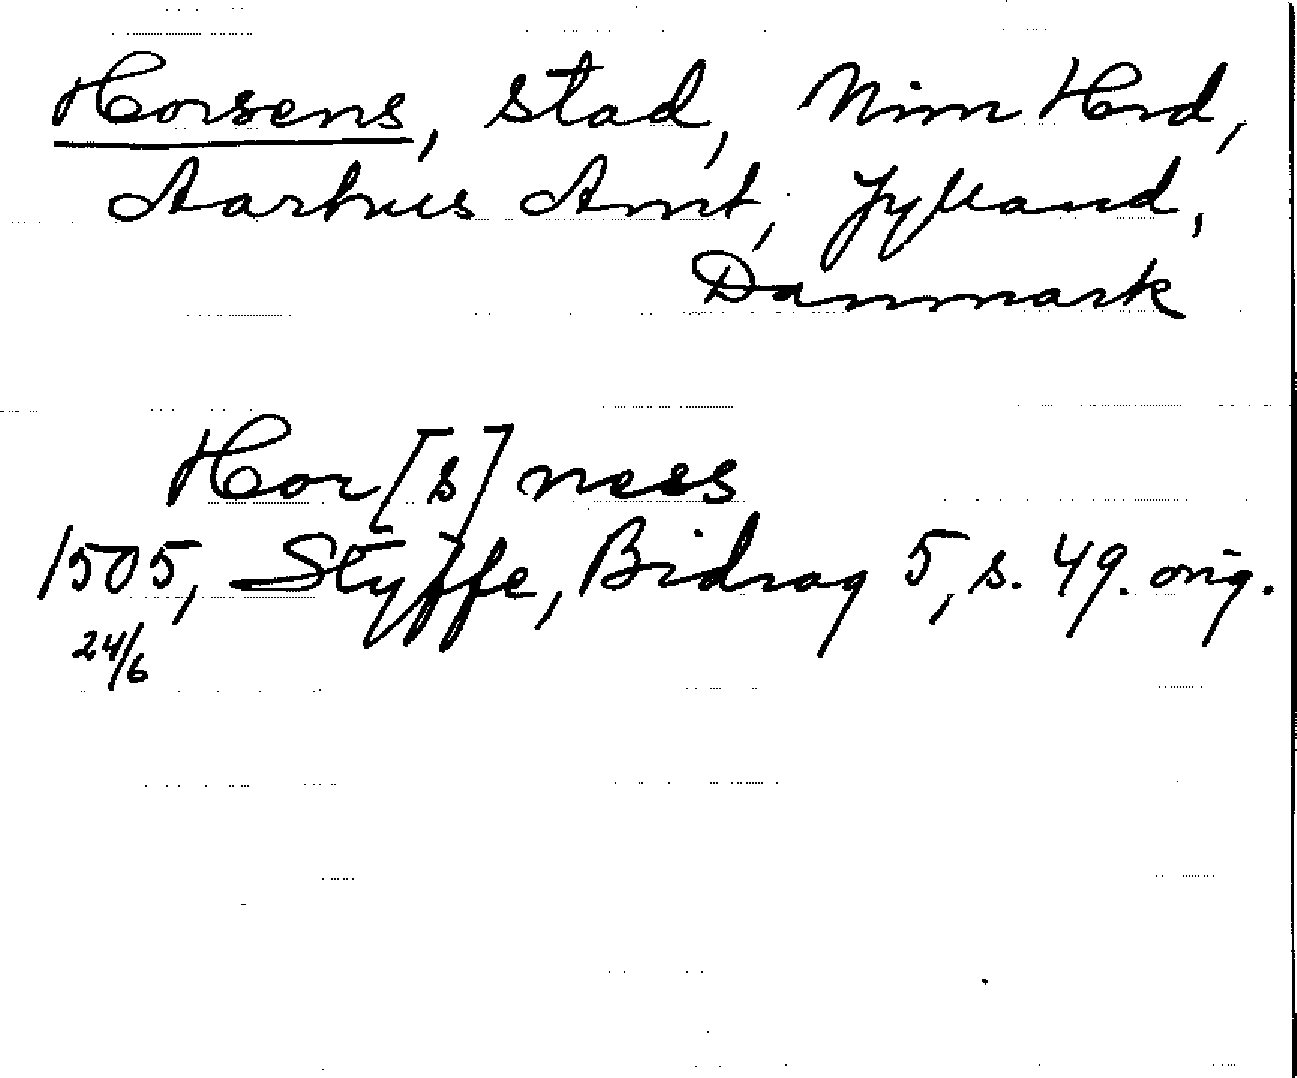 Horsens, stad, Nim Hrd,
Aarhus Amt, Jylland,
Danmark
Hor[s]nees
1505, Styffe, Bidrag 5, s. 49. orig.
24/6